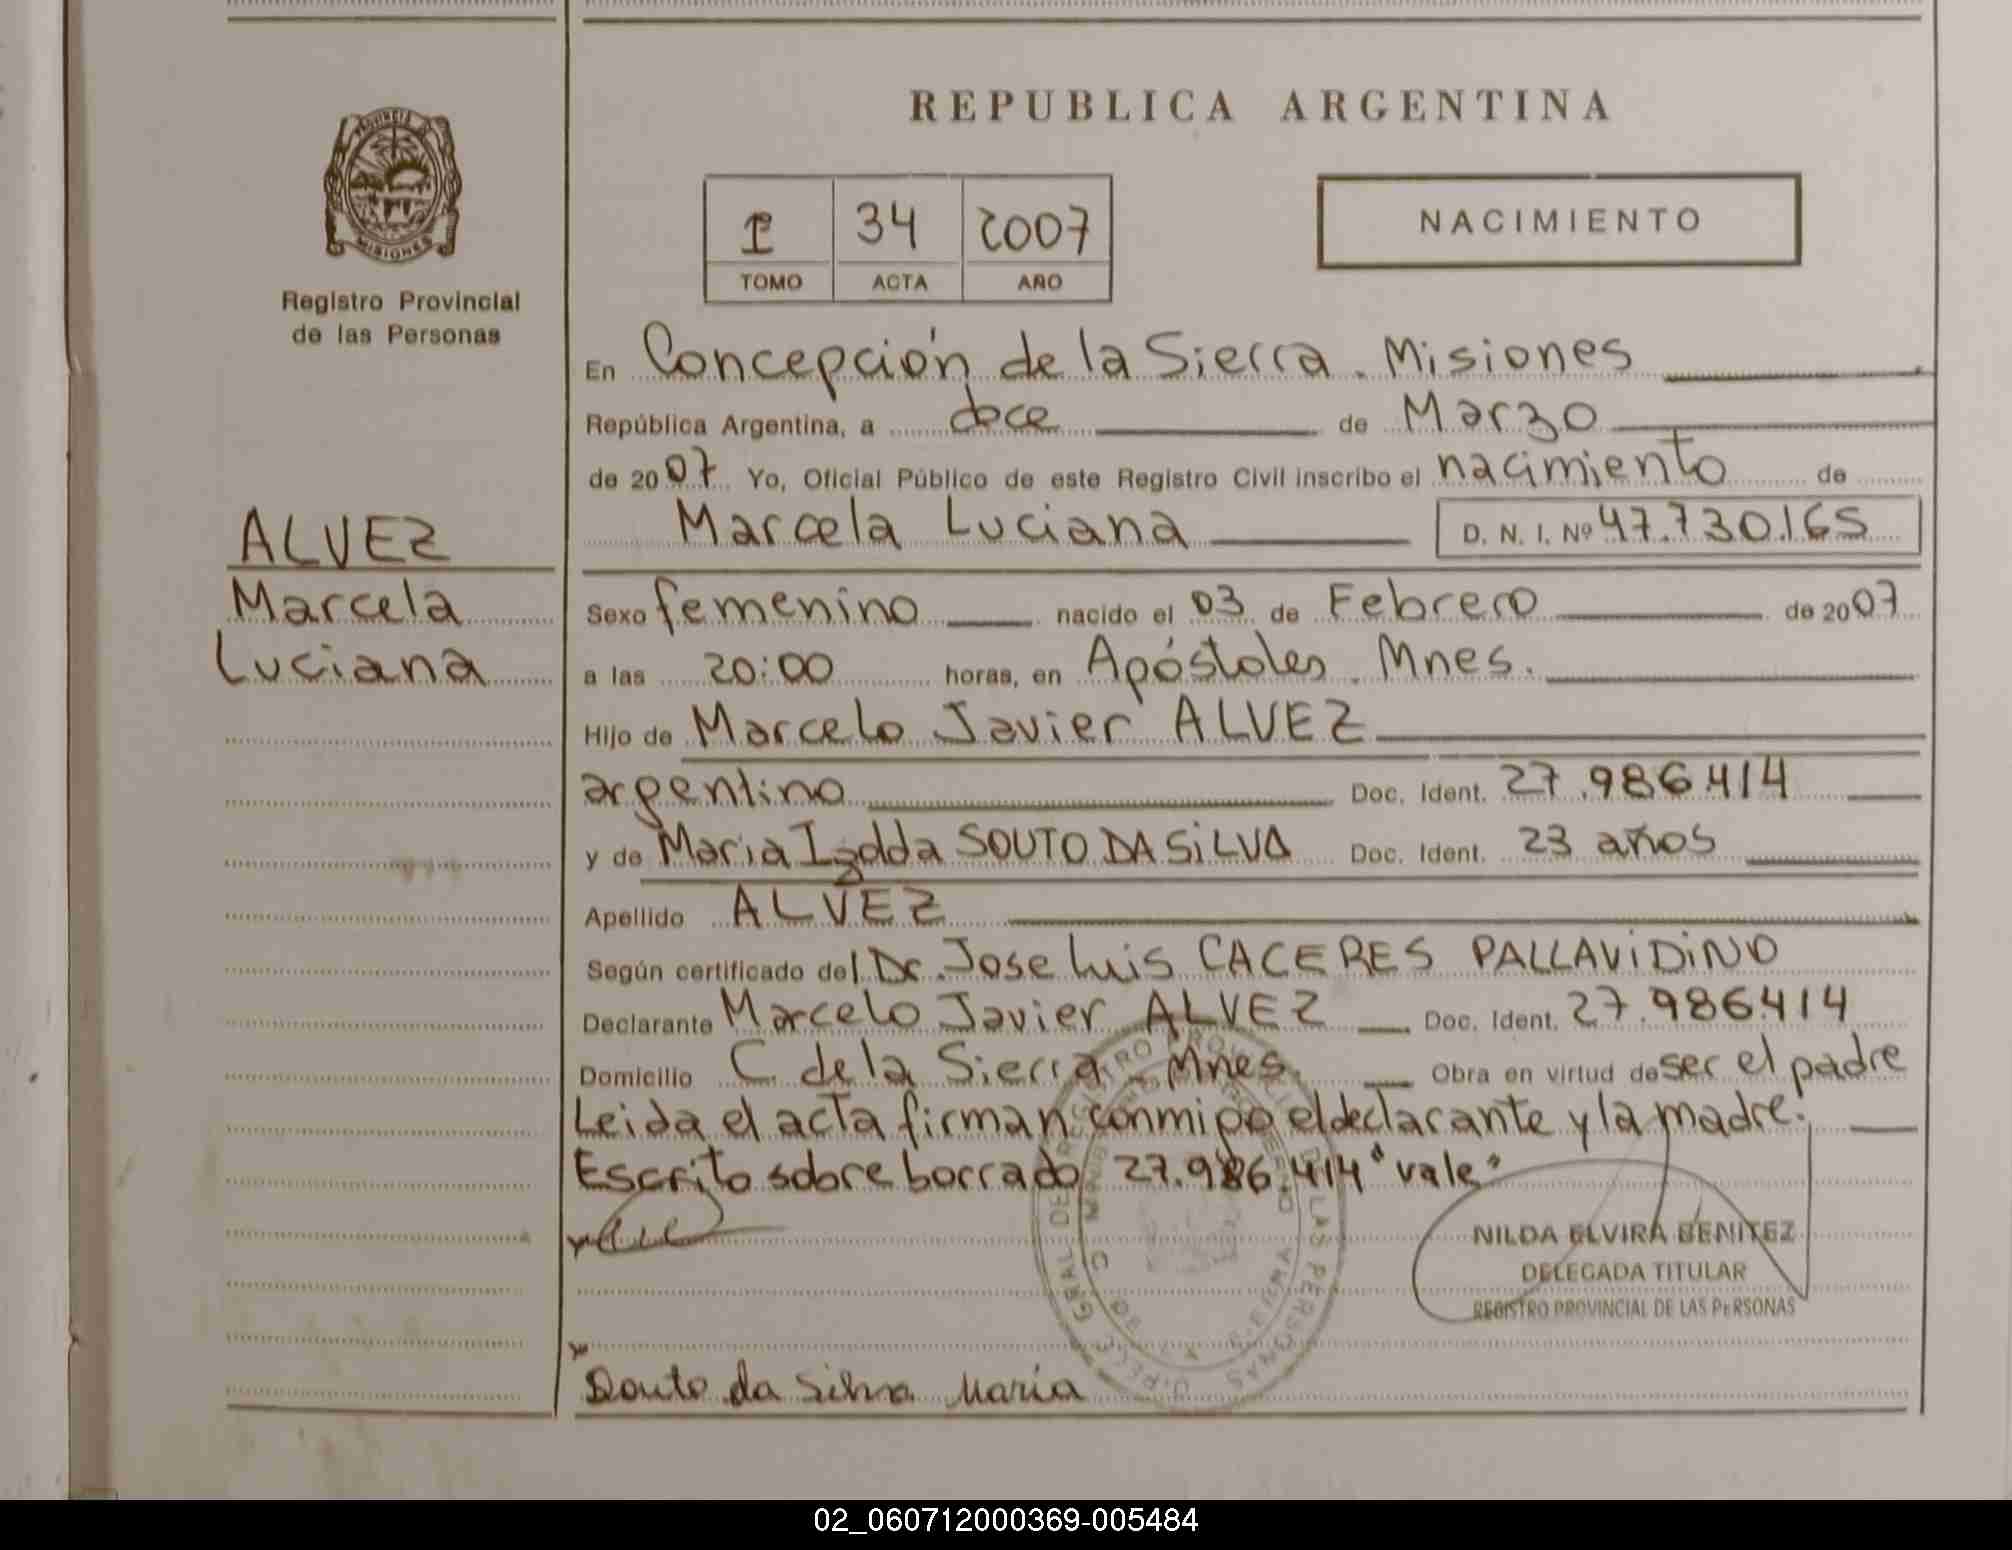 REPUBLICA ARGENTINA
PROVINCIA DE
MISIONES
Registro Provincial
de las Personas
I 34 2007
TOMO ACTA AÑO
NACIMIENTO
En Concepción de la Sierra. Misiones
República Argentina, a doce de Marzo
de 2007 Yo, Oficial Público de este Registro Civil inscribo el nacimiento de
Marcela Luciana D. N. I. Nº 47.730.165
ALVEZ
Marcela
Luciana
Sexo femenino nacido el 03 de Febrero de 2007
a las 20:00 horas, en Apóstoles. Mnes.
Hijo de Marcelo Javier ALVEZ
argentino Doc. Ident. 27.986.414
y de Maria Izolda SOUTO DA SILVA Doc. Ident. 23 años
Apellido ALVEZ
Según certificado del Dr. Jose Luis CACERES PALLAVIDINO
Declarante Marcelo Javier ALVEZ Doc. Ident. 27.986.414
Domicilio C. de la Sierra - Mnes. Obra en virtud de ser el padre
Leida el acta firman conmigo el declarante y la madre.
Escrito sobre borrado 27.986.414 "vale"
NILDA ELVIRA BENITEZ
DELEGADA TITULAR
REGISTRO PROVINCIAL DE LAS PERSONAS
Souto da Silva Maria
02_060712000369-005484